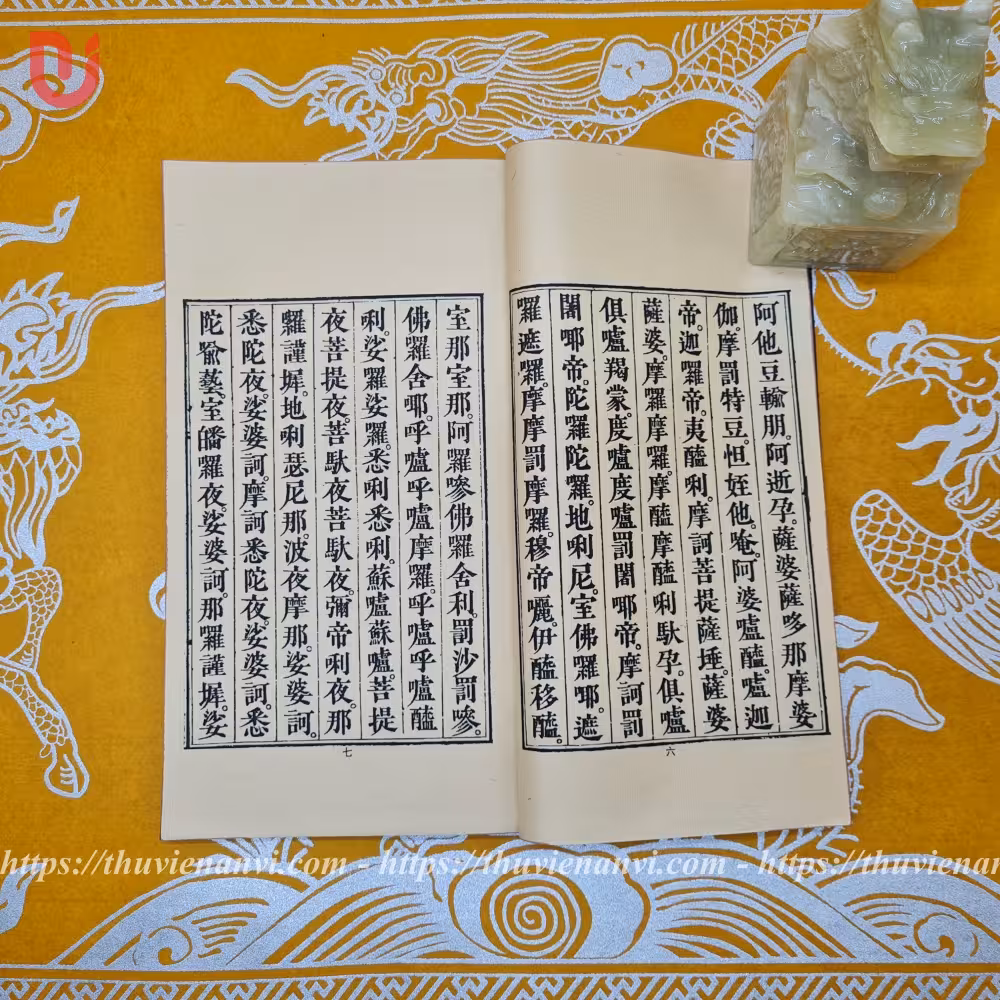 阿他豆輸朋。阿逝孕。薩婆薩哆那摩婆
伽。摩罰特豆。怛姪他。唵。阿婆嚧醯。嚧迦
帝。迦囉帝。夷醯唎。摩訶菩提薩埵。薩婆
薩婆。摩囉摩囉。摩醯摩醯唎馱孕。俱嚧
俱嚧羯蒙。度嚧度嚧罰闍耶帝。摩訶罰
闍耶帝。陀羅陀羅。地唎尼。室佛羅耶。遮
囉遮囉。摩摩罰摩囉。穆帝囇。伊醯移醯。
六
室那室那。阿羅嘇佛羅舍利。罰沙罰嘇。
佛羅舍耶。呼嚧呼嚧摩羅。呼嚧呼嚧醯
唎。娑羅娑羅。悉唎悉唎。蘇嚧蘇嚧。菩提
夜菩提夜。菩馱夜菩馱夜。彌帝唎夜。那
羅謹墀。地唎瑟尼那。波夜摩那。娑婆訶。
悉陀夜。娑婆訶。摩訶悉陀夜。娑婆訶。悉
陀喻藝。室皤羅夜。娑婆訶。那羅謹墀。娑
七
https://thuvienanvi.com - https://thuvienanvi.com - https://thuvienan